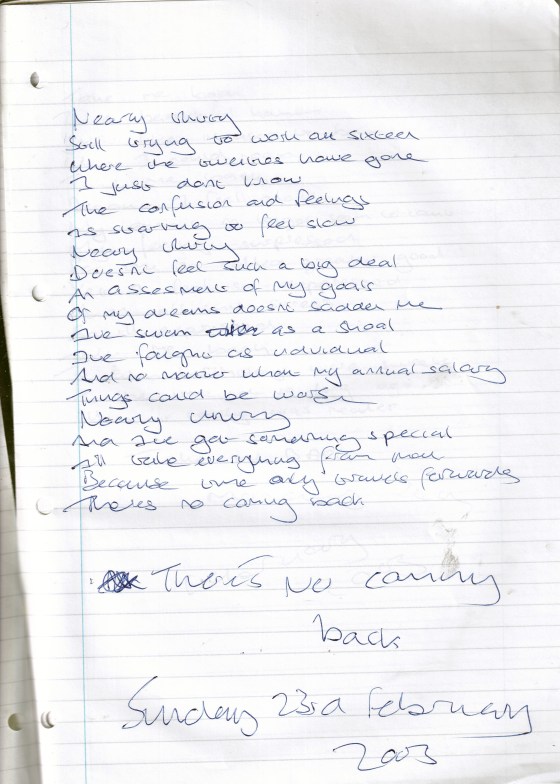 Nearly thirty
Still trying to work out sixteen
Where the twenties have gone
I just dont know
The confusion and feelings
Is starting to feel slow
Nearly thirty
Doesnt feel such a big deal
An assesment of my goals
Of my dreams doesnt sadden me
Ive swum as a shoal
Ive faught as individual
And no matter what my annual salary
Things could be worse
Nearly thirty
And Ive got something special
Ill take everything from that
Because time only travels forwards
Theres no coming back
There's No coming
back
Sunday 23rd February
2003